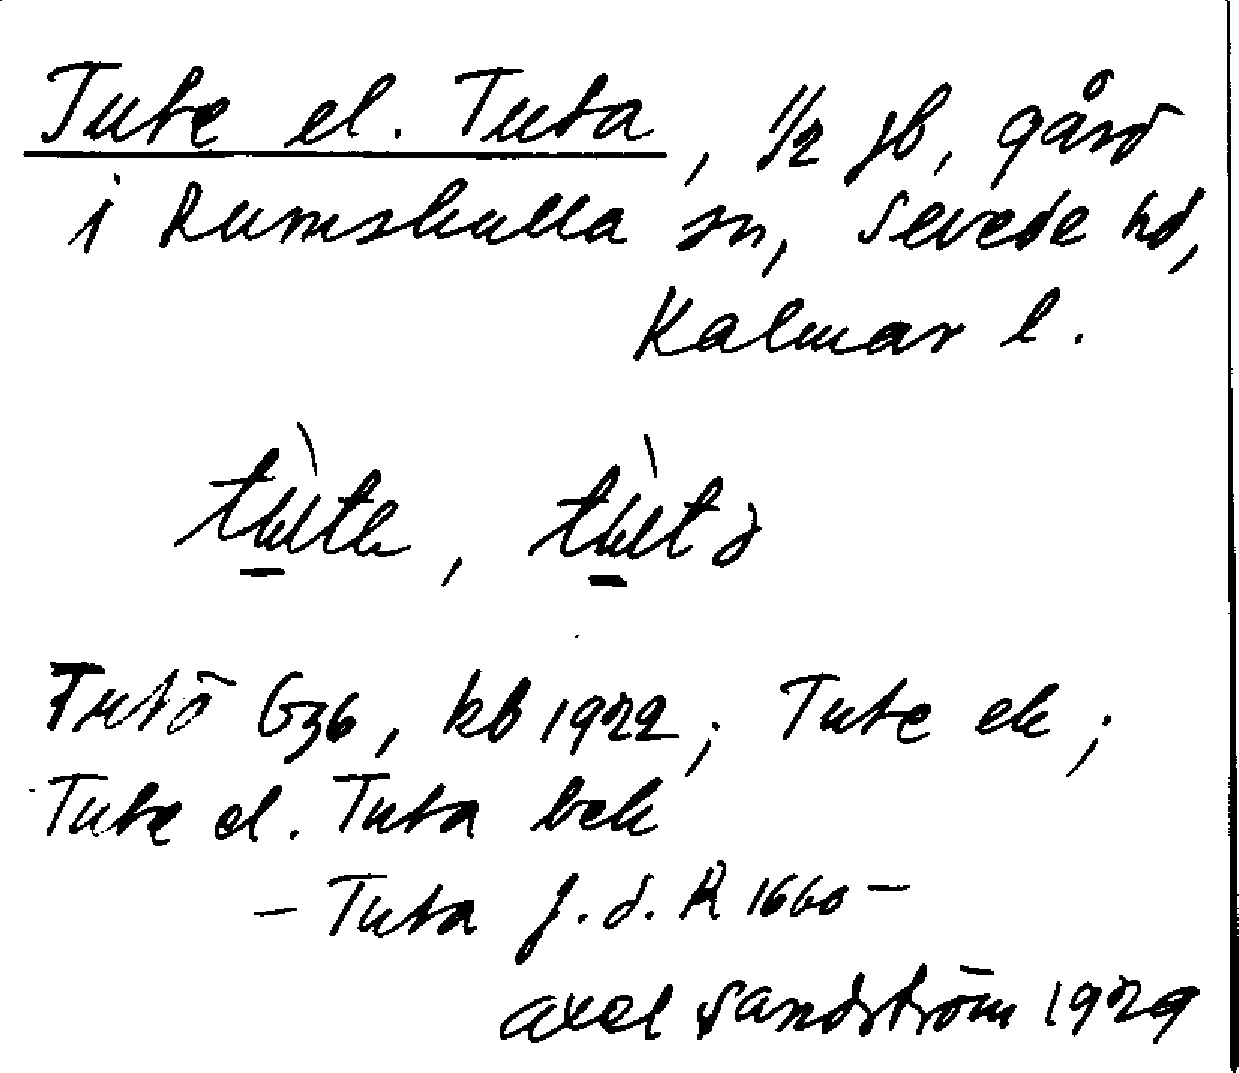 Tute el. Tuta, 1/2 jb, gård
i Rumskulla sn, Sevede hd,
Kalmar l.
tùte, tùtə
Tutö G36, kb 1922; Tute ek;
Tute el. Tuta bek
– Tuta J.d. R 1660 –
Axel Sandström 1929